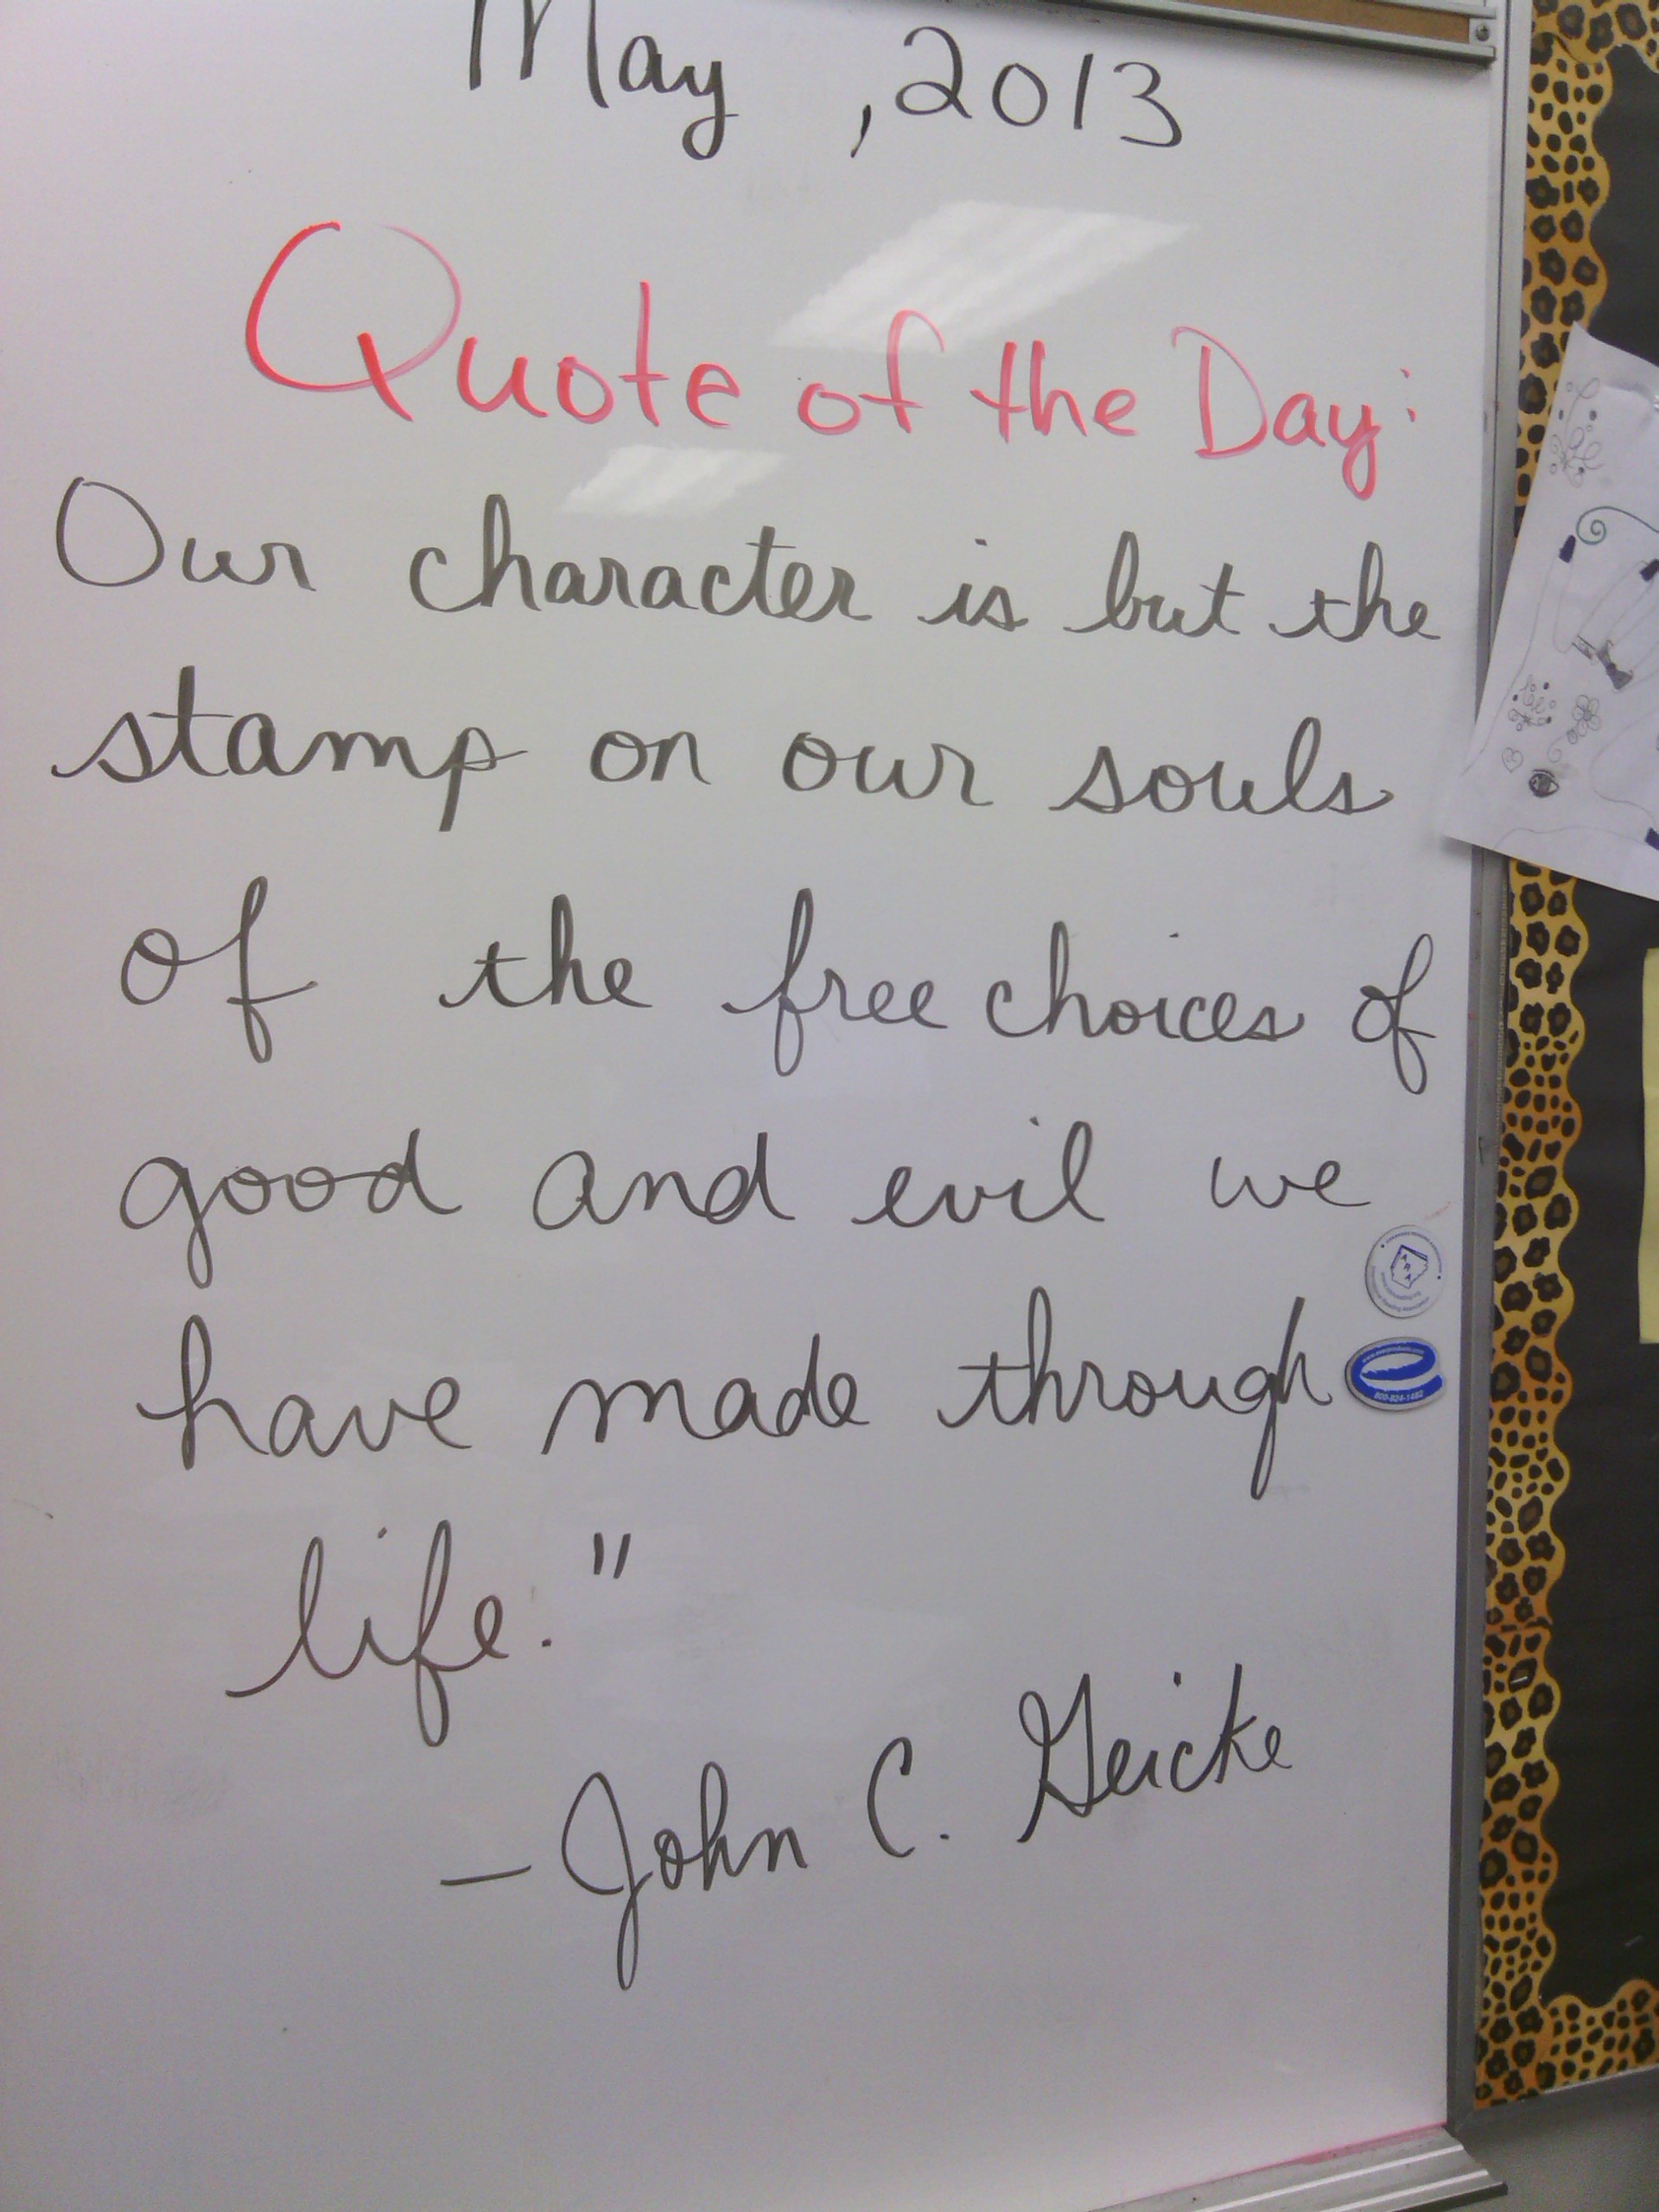 May , 2013
Quote of the Day:
Our character is but the
stamp on our souls
of the free choices of
good and evil we
have made through
life."
- John C. Geicke
www.
800-824-1482